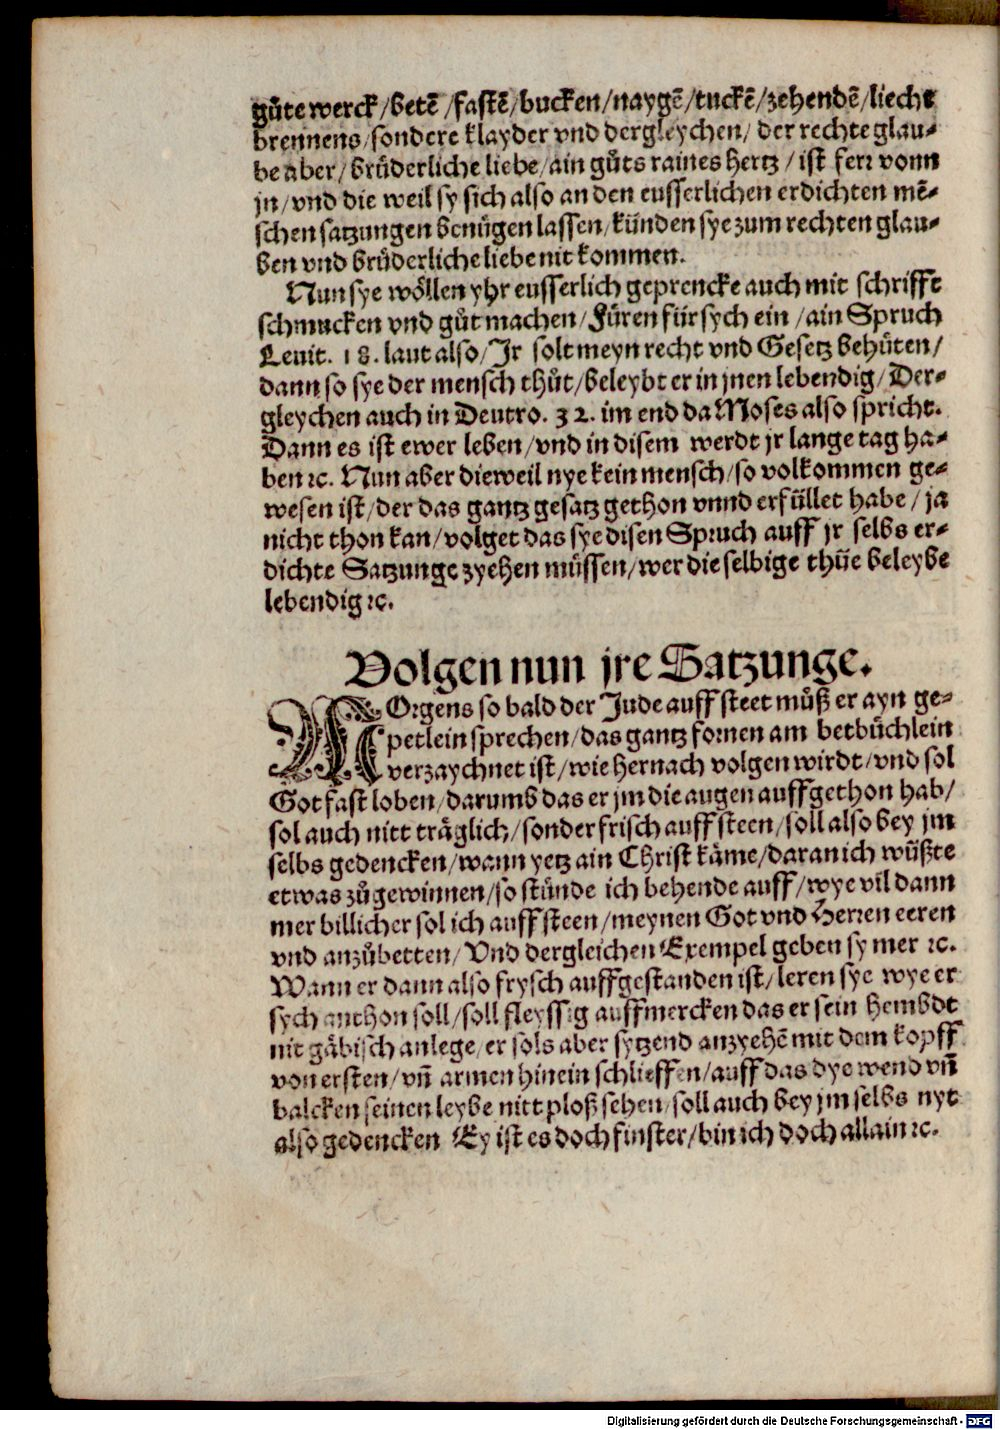 gůte werck/betē/fastē/bucken/naygē/tuckē/zehendē/liecht
brennens/sondere klayder vnd dergleychen/ der rechte glau⸗
be aber/ brůderliche liebe/ain gůts raines hertz/ ist ferr vonn
jn/vnd die weil sy sich also an den eusserlichen erdichten mē⸗
schen satzungen benügen lassen/künden sye zum rechten glau⸗
ben vnd brüderliche liebe nit kommen.
Nun sye wöllen yhr eusserlich geprencke auch mit schrifft
schmucken vnd gůt machen/ Füren für sych ein /ain Spruch
Leuit. 18. laut also/ Jr solt meyn recht vnd Gesetz behüten/
dann so sye der mensch thůt/beleybt er in jnen lebendig/ Der⸗
gleychen auch in Deutro. 32. im end da Moses also spricht.
Dann es ist ewer leben/vnd in disem werdt jr lange tag ha⸗
ben ꝛc. Nun aber dieweil nye kein mensch/so volkommen ge⸗
wesen ist/der das gantz gesatz gethon vnnd erfüllet habe/ ja
nicht thon kan/volget das sye disen Spruch auff jr selbs er⸗
dichte Satzunge zyehen müssen/wer die selbige thüe beleybe
lebendig ꝛc.
Volgen nun jre Satzunge.
MOrgens so bald der Jude auff steet můß er ayn ge⸗
petlein sprechen/das gantz fornen am betbüchlein
verzaychnet ist/wie hernach volgen wirdt/vnd sol
Got fast loben/darumb das er jm die augen auffgethon hab/
sol auch nitt träglich/sonder frisch auff steen/soll also bey jm
selbs gedencken/wann yetz ain Christ käme/daran ich wüßte
etwas zůgewinnen/so stünde ich behende auff/wye vil dann
mer billicher sol ich auff steen/meynen Got vnd Herren eeren
vnd anzůbetten/ Vnd dergleichen Exempel geben sy mer ꝛc.
Wann er dann also frysch auffgestanden ist/leren sye wye er
sych anthon soll/soll fleyssig auffmercken das er sein hembdt
nit gäbisch anlege/er sols aber sytzend anzyehē mit dem kopff
von ersten/vñ armen hinein schlieffen/auff das dye wend vñ
balcken seinen leybe nitt ploß sehen/soll auch bey jm selbs nyt
also gedencken Ey ist es doch finster/bin ich doch allain ꝛc.
Digitalisierung gefördert durch die Deutsche Forschungsgemeinschaft - DFG